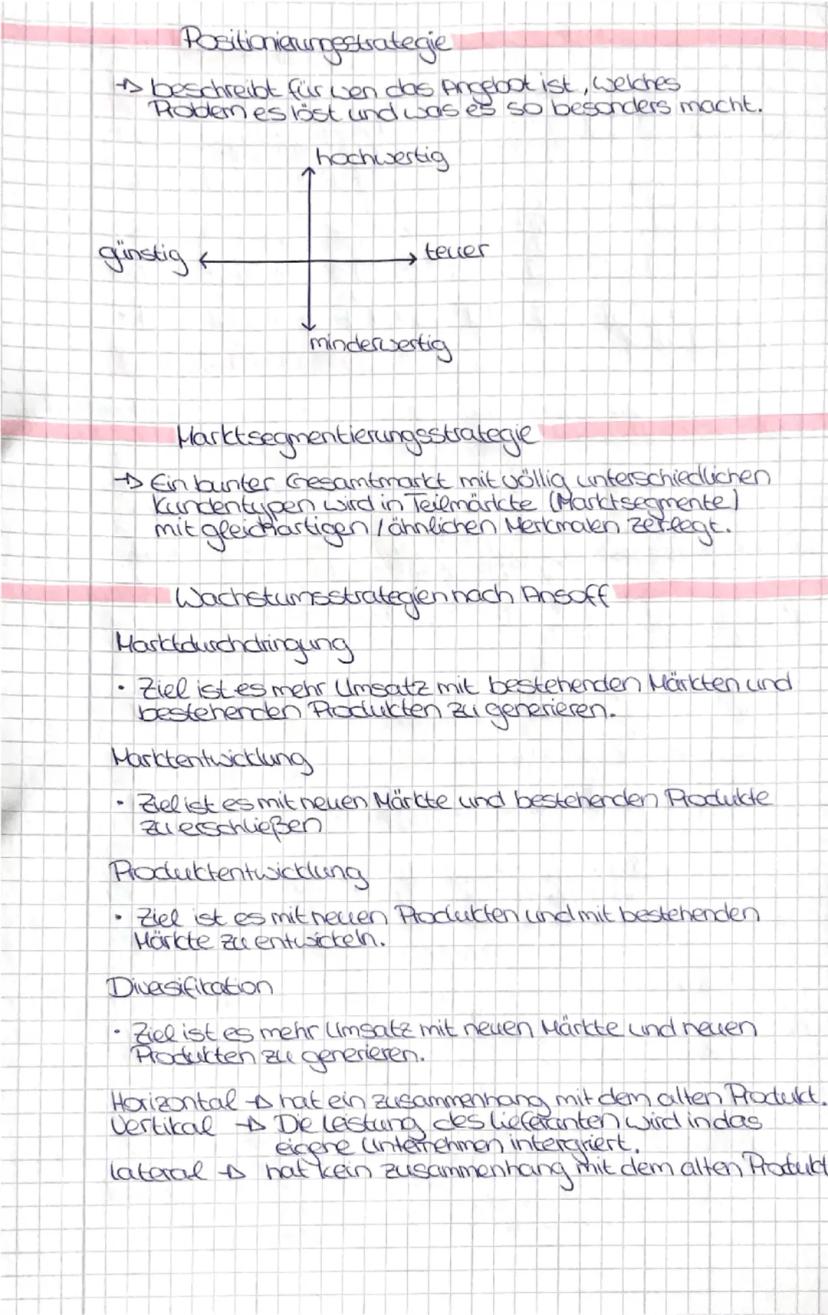 Positionierungsstrategie
→ beschreibt für wen das Angebot ist, welches
Problem es löst und was es so besonders macht.
hochwertig
günstig
teuer
minderwertig
Marktsegmentierungsstrategie
→ Ein bunter Gesamtmarkt mit völlig unterschiedlichen
Kundentypen wird in Teilmärkte (Marktsegmente)
mit gleichartigen / ähnlichen Merkmalen zerlegt.
Wachstumsstrategien nach Ansoff
Marktdurchdringung
· Ziel ist es mehr Umsatz mit bestehenden Märkten und
bestehenden Produkten zu generieren.
Marktentwicklung
· Ziel ist es mit neuen Märkte und bestehenden Produkte
zu erschließen
Produktentwicklung
· Ziel ist es mit neuen Produkten und mit bestehenden
Märkte zu entwickeln.
Diversifikation
· Ziel ist es mehr Umsatz mit neuen Märkte und neuen
Produkten zu generieren.
Horizontal → hat ein zusammenhang mit dem alten Produkt.
Vertikal → Die Leistung des Lieferanten wird in das
eigene Unternehmen intergriert.
Lateral → hat kein zusammenhang mit dem alten Produkt